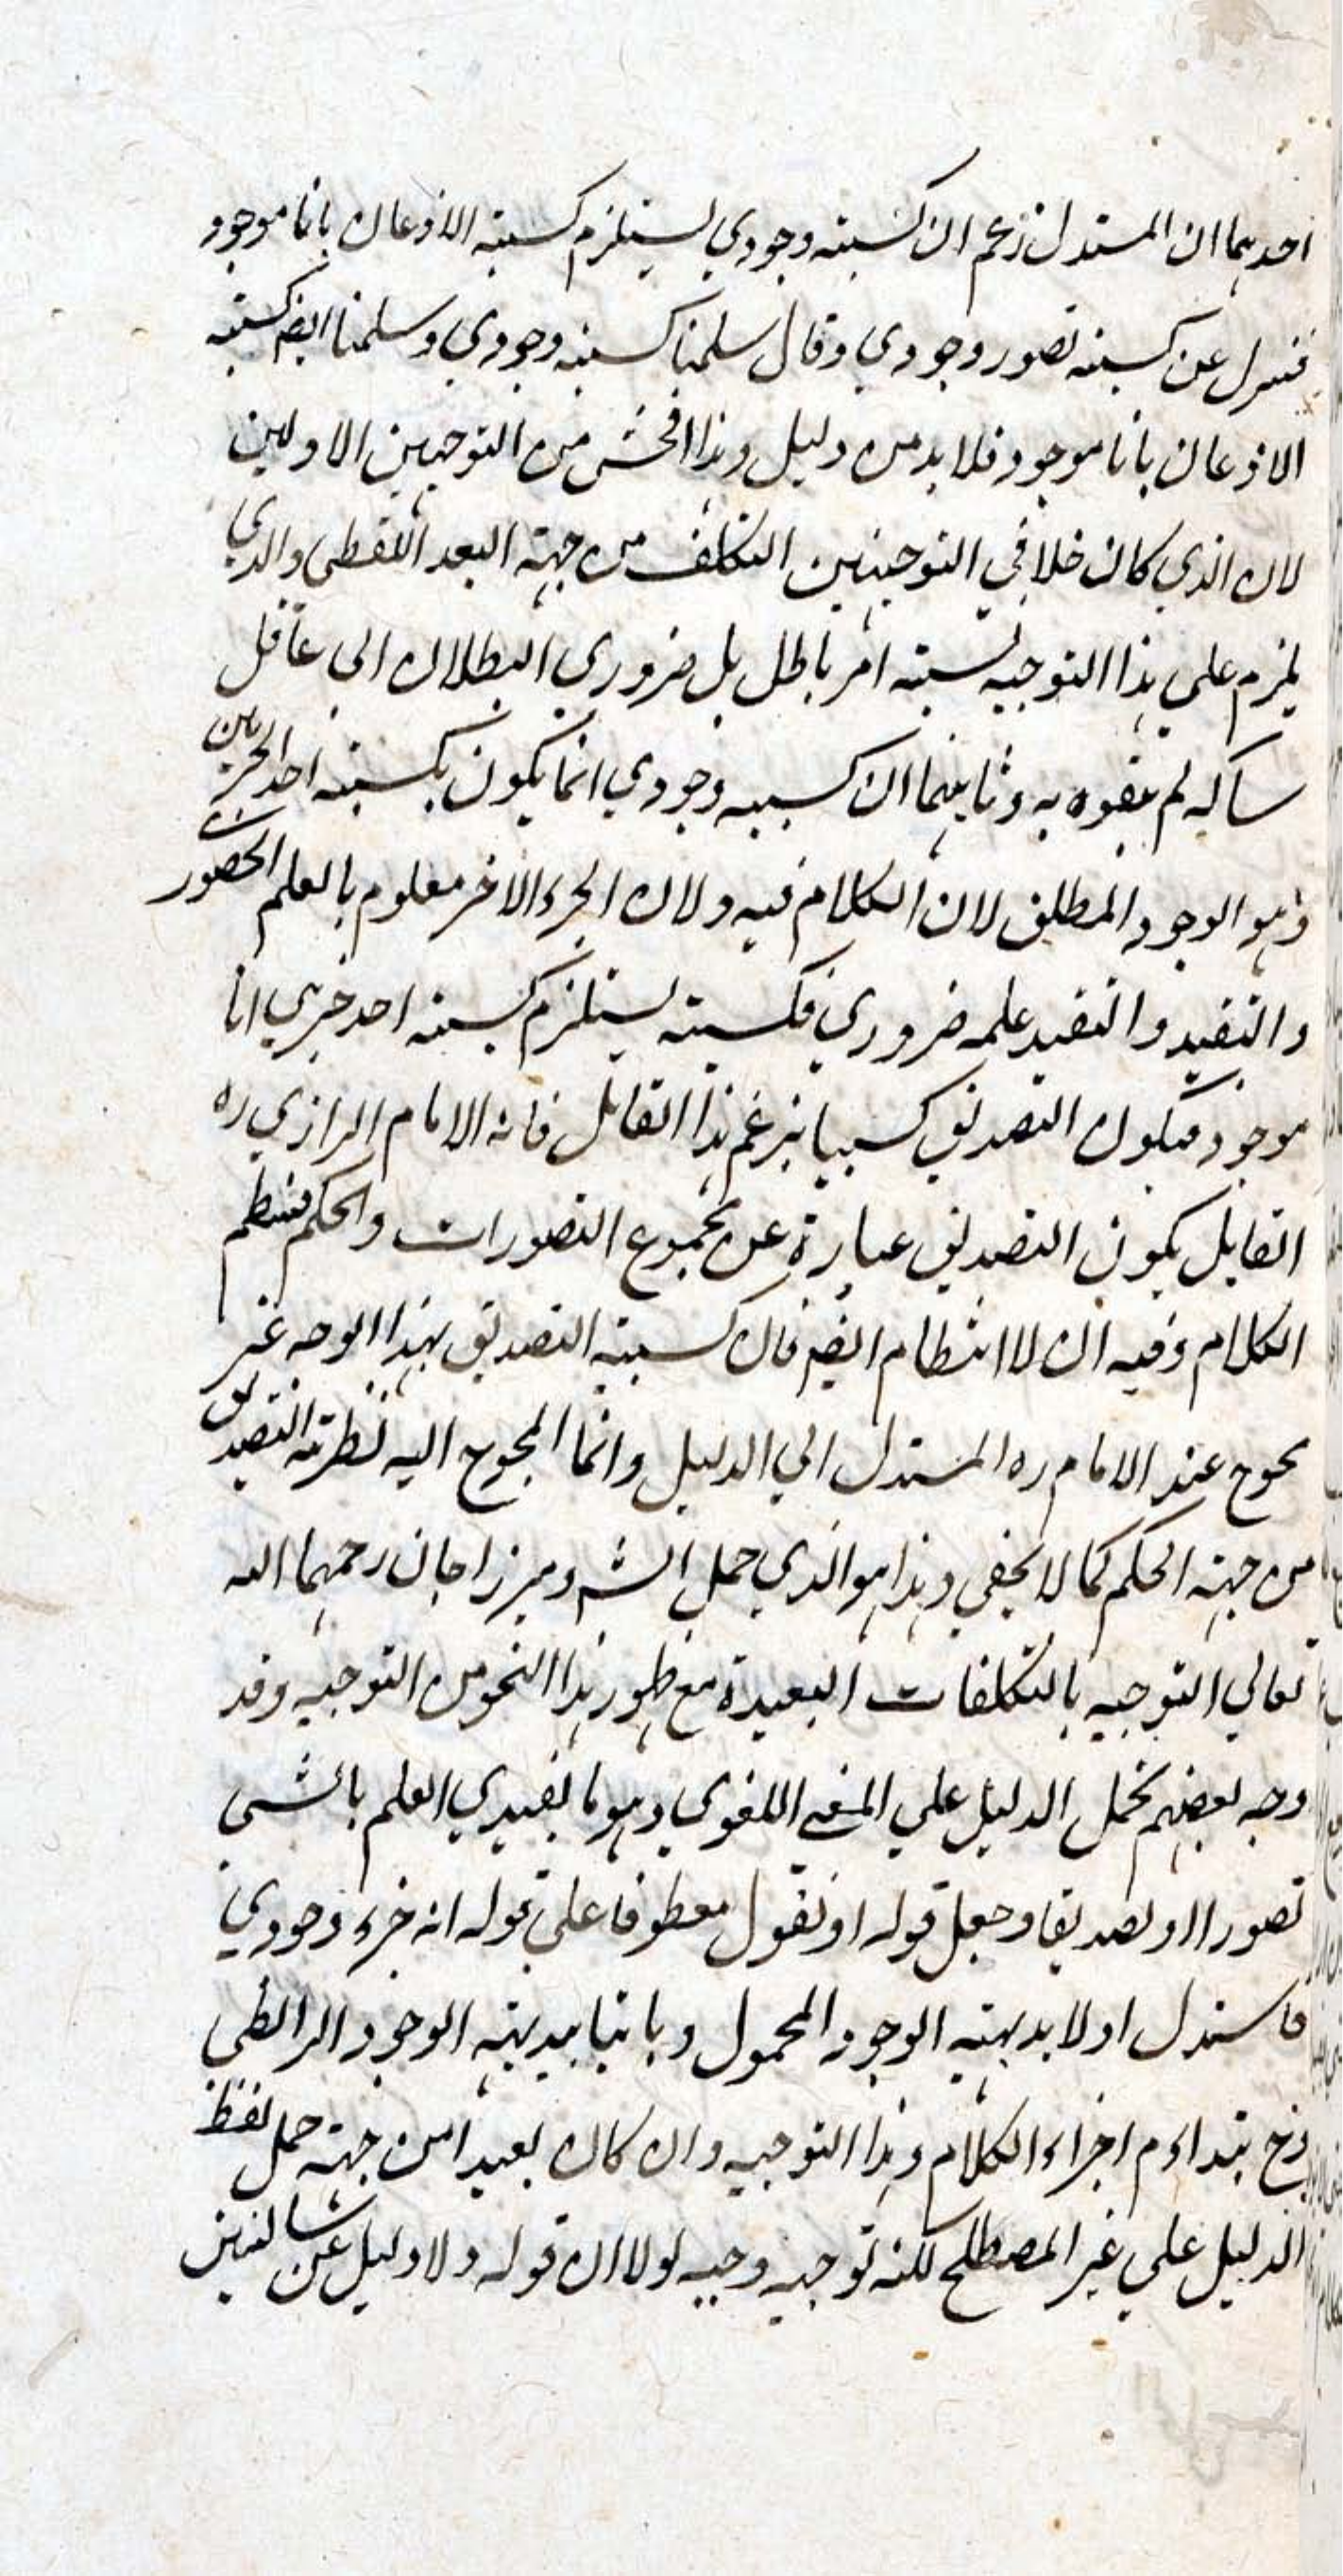 احدهما ان المستدل زعم ان كسبية وجودي يستلزم كسبية الاذعان بانا موجود
فنزل عن كسبية تصور وجودي وقال سلمنا كسبية وجودي وسلمنا ايضا كسبية
الاذعان بانا موجود فلا بد من دليل وهذا افحش من التوجيهين الاولين
لان الذي كان خلا في التوجيهين التكلف من جهة البعد اللفظي والذي
يلزم على هذا التوجيه نسبة امر باطل بل ضروري البطلان الى عاقل
لم يتفوه به وثانيهما ان كسبية وجودي انما يكون بكسبية احد الجزئين
وهو الوجود المطلق لان الكلام فيه ولان الجزء الاخر معلوم بالعلم الحضوري
والتقييد والتقييد علمه ضروري فكسبيته يستلزم كسبية احد جزئي انا
موجود فيكون التصديق كسبيا بزعم هذا القائل فانه الامام الرازي ره
القائل بكون التصديق عبارة عن مجموع التصورات والحكم فينتظم
الكلام وفيه ان لا انتظام ايضا فان كسبية التصديق بهذا الوجه غير
محوج عند الامام ره المستدل الي الدليل وانما المحوج اليه نظرية التصديق
من جهة الحكم كما لا يخفي وهذا هو الذي حمل الش وميرزا جان رحمهما الله
تعالي التوجيه بالتكلفات البعيدة مع ظهور هذا النحو من التوجيه وقد
وجه بعضهم بحمل الدليل علي المعنى اللغوي وهو ما يفيدي العلم بالشي
تصورا او تصديقا وجعل قوله او نقول معطوفا علي قوله انه جزء وجودي
فاستدل اولا بديهة الوجود المحمول وثانيا بديهة الوجود الرابطي
وح اجزاء الكلام وهذا التوجيه وان كان بعيدا من جهة حمل لفظ
الدليل علي غير المصطلح لكنه توجيه وجيه لولا ان قوله ولا دليل عن سالبتين